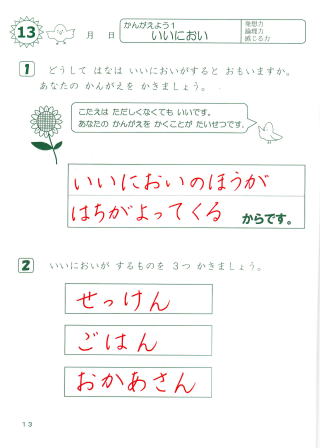 13
月 日
かんがえよう1
いいにおい
発想力
論理力
感じる力
1 どうして はなは いいにおいがすると おもいますか。
あなたの かんがえを かきましょう。
こたえは ただしくなくても いいです。
あなたの かんがえを かくことが たいせつです。
いいにおいのほうが
はちがよってくる からです。
2 いいにおいが するものを 3つ かきましょう。
せっけん
ごはん
おかあさん
13